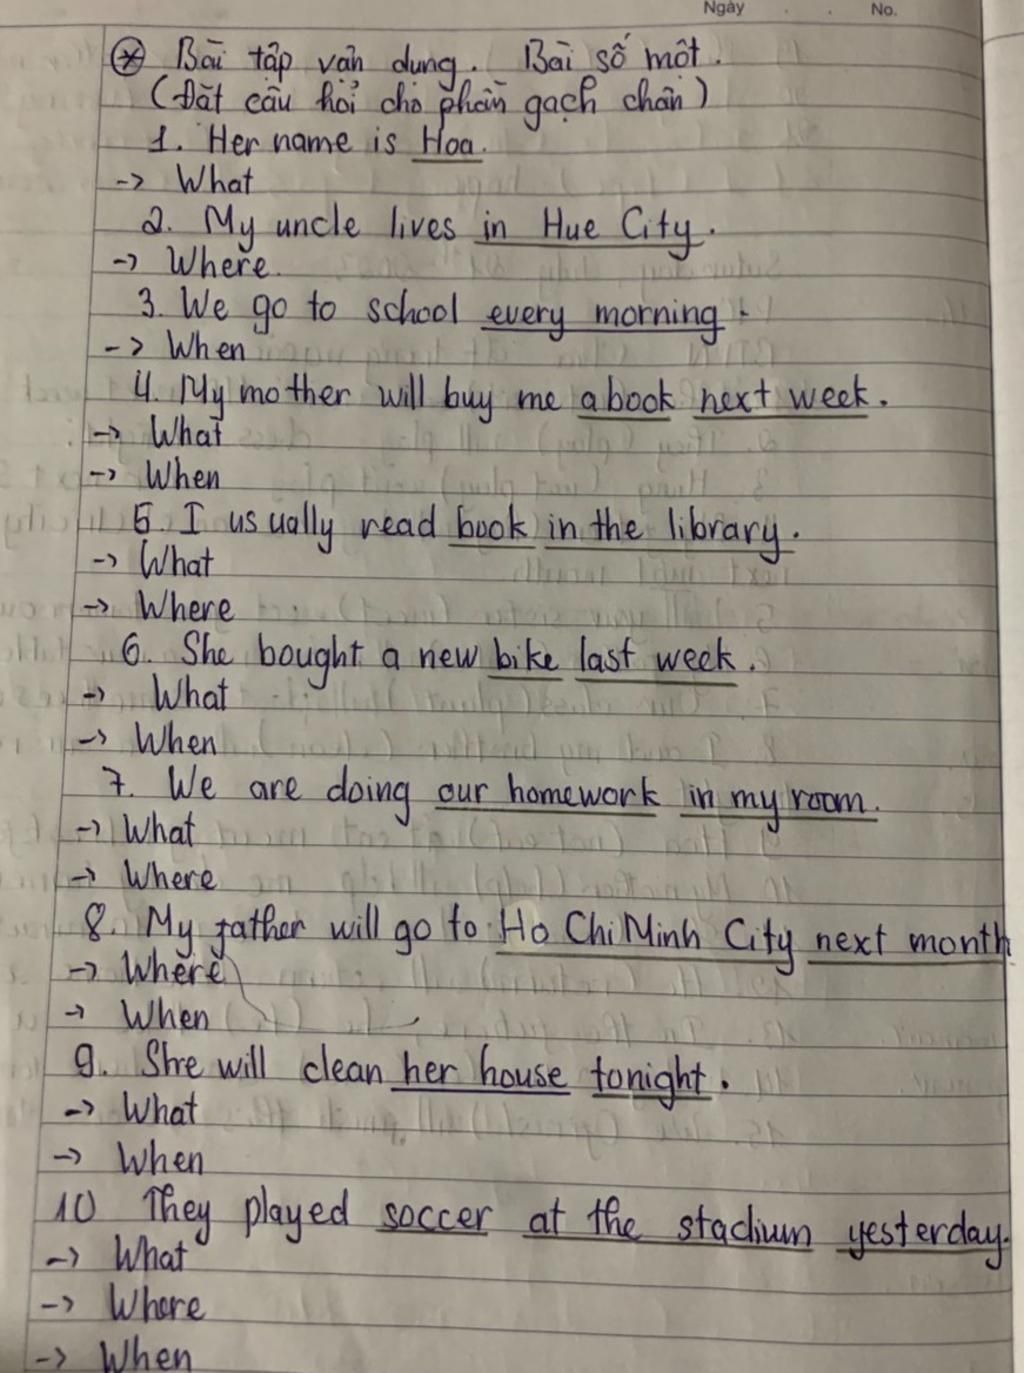 Ngày . . No.
Bài tập vận dụng. Bài số một.
(Đặt câu hỏi cho phần gạch chân)
1. Her name is Hoa.
-> What
2. My uncle lives in Hue City.
-> Where.
3. We go to school every morning.
-> When
4. My mother will buy me a book next week.
-> What
-> When
5. I usually read book in the library.
-> What
-> Where
6. She bought a new bike last week.
-> What
-> When
7. We are doing our homework in my room.
-> What
-> Where
8. My father will go to Ho Chi Minh City next month
-> Where
-> When
9. She will clean her house tonight.
-> What
-> When
10 They played soccer at the stadium yesterday.
-> What
-> Where
-> When